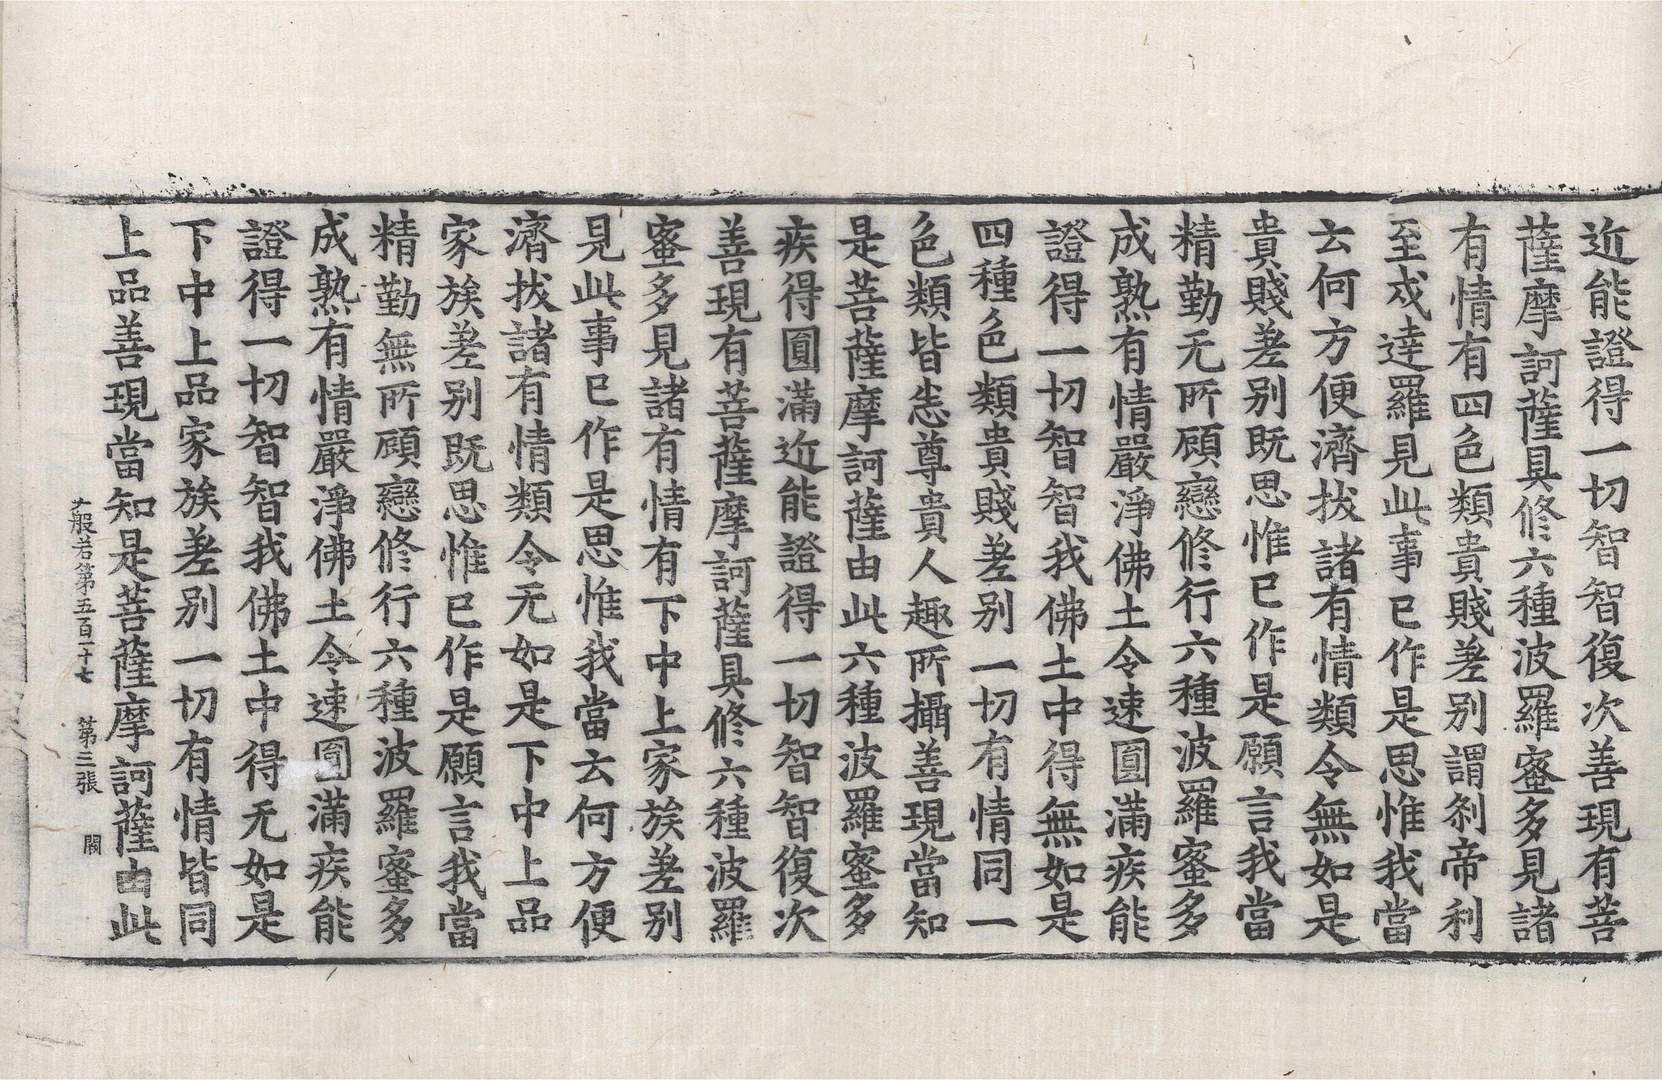 近能證得一切智智復次善現有菩
薩摩訶薩具修六種波羅蜜多見諸
有情有四色類貴賤差别謂刹帝利
至戍達羅見此事已作是思惟我當
云何方便濟拔諸有情類令無如是
貴賤差别既思惟已作是願言我當
精勤无所顧戀修行六種波羅蜜多
成熟有情嚴淨佛土令速圓滿疾能
證得一切智智我佛土中得無如是
四種色類貴賤差别一切有情同一
色類皆悉尊貴人趣所攝善現當知
是菩薩摩訶薩由此六種波羅蜜多
疾得圓滿近能證得一切智智復次
善現有菩薩摩訶薩具修六種波羅
蜜多見諸有情有下中上家族差别
見此事已作是思惟我當云何方便
濟拔諸有情類令无如是下中上品
家族差别既思惟已作是願言我當
精勤無所顧戀修行六種波羅蜜多
成熟有情嚴淨佛土令速圓滿疾能
證得一切智智我佛土中得无如是
下中上品家族差别一切有情皆同
上品善現當知是菩薩摩訶薩由此
大般若第五百二十七 第三張 闕